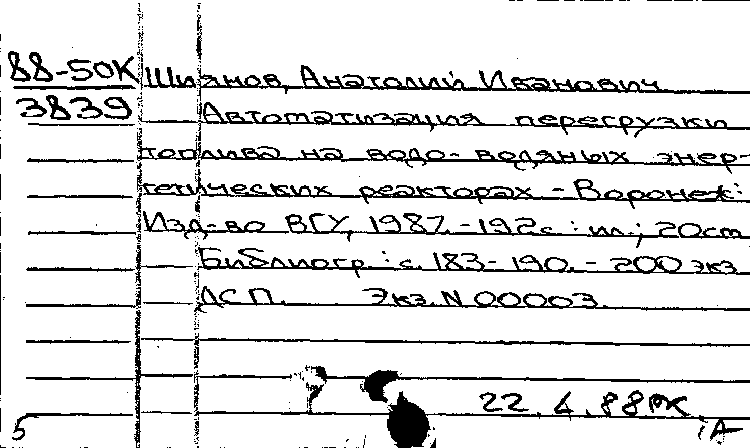 88-50К Шиянов, Анатолий Иванович
3839 Автоматизация перегрузки
топлива на водо-водяных энер-
гетических реакторах - Воронеж:
Изд-во ВГУ, 1987.-192с : ил.; 20cm
Библиогр.: с. 183-190.- 200 экз
ДСП. Экз. N 00003.
22.4.88
5